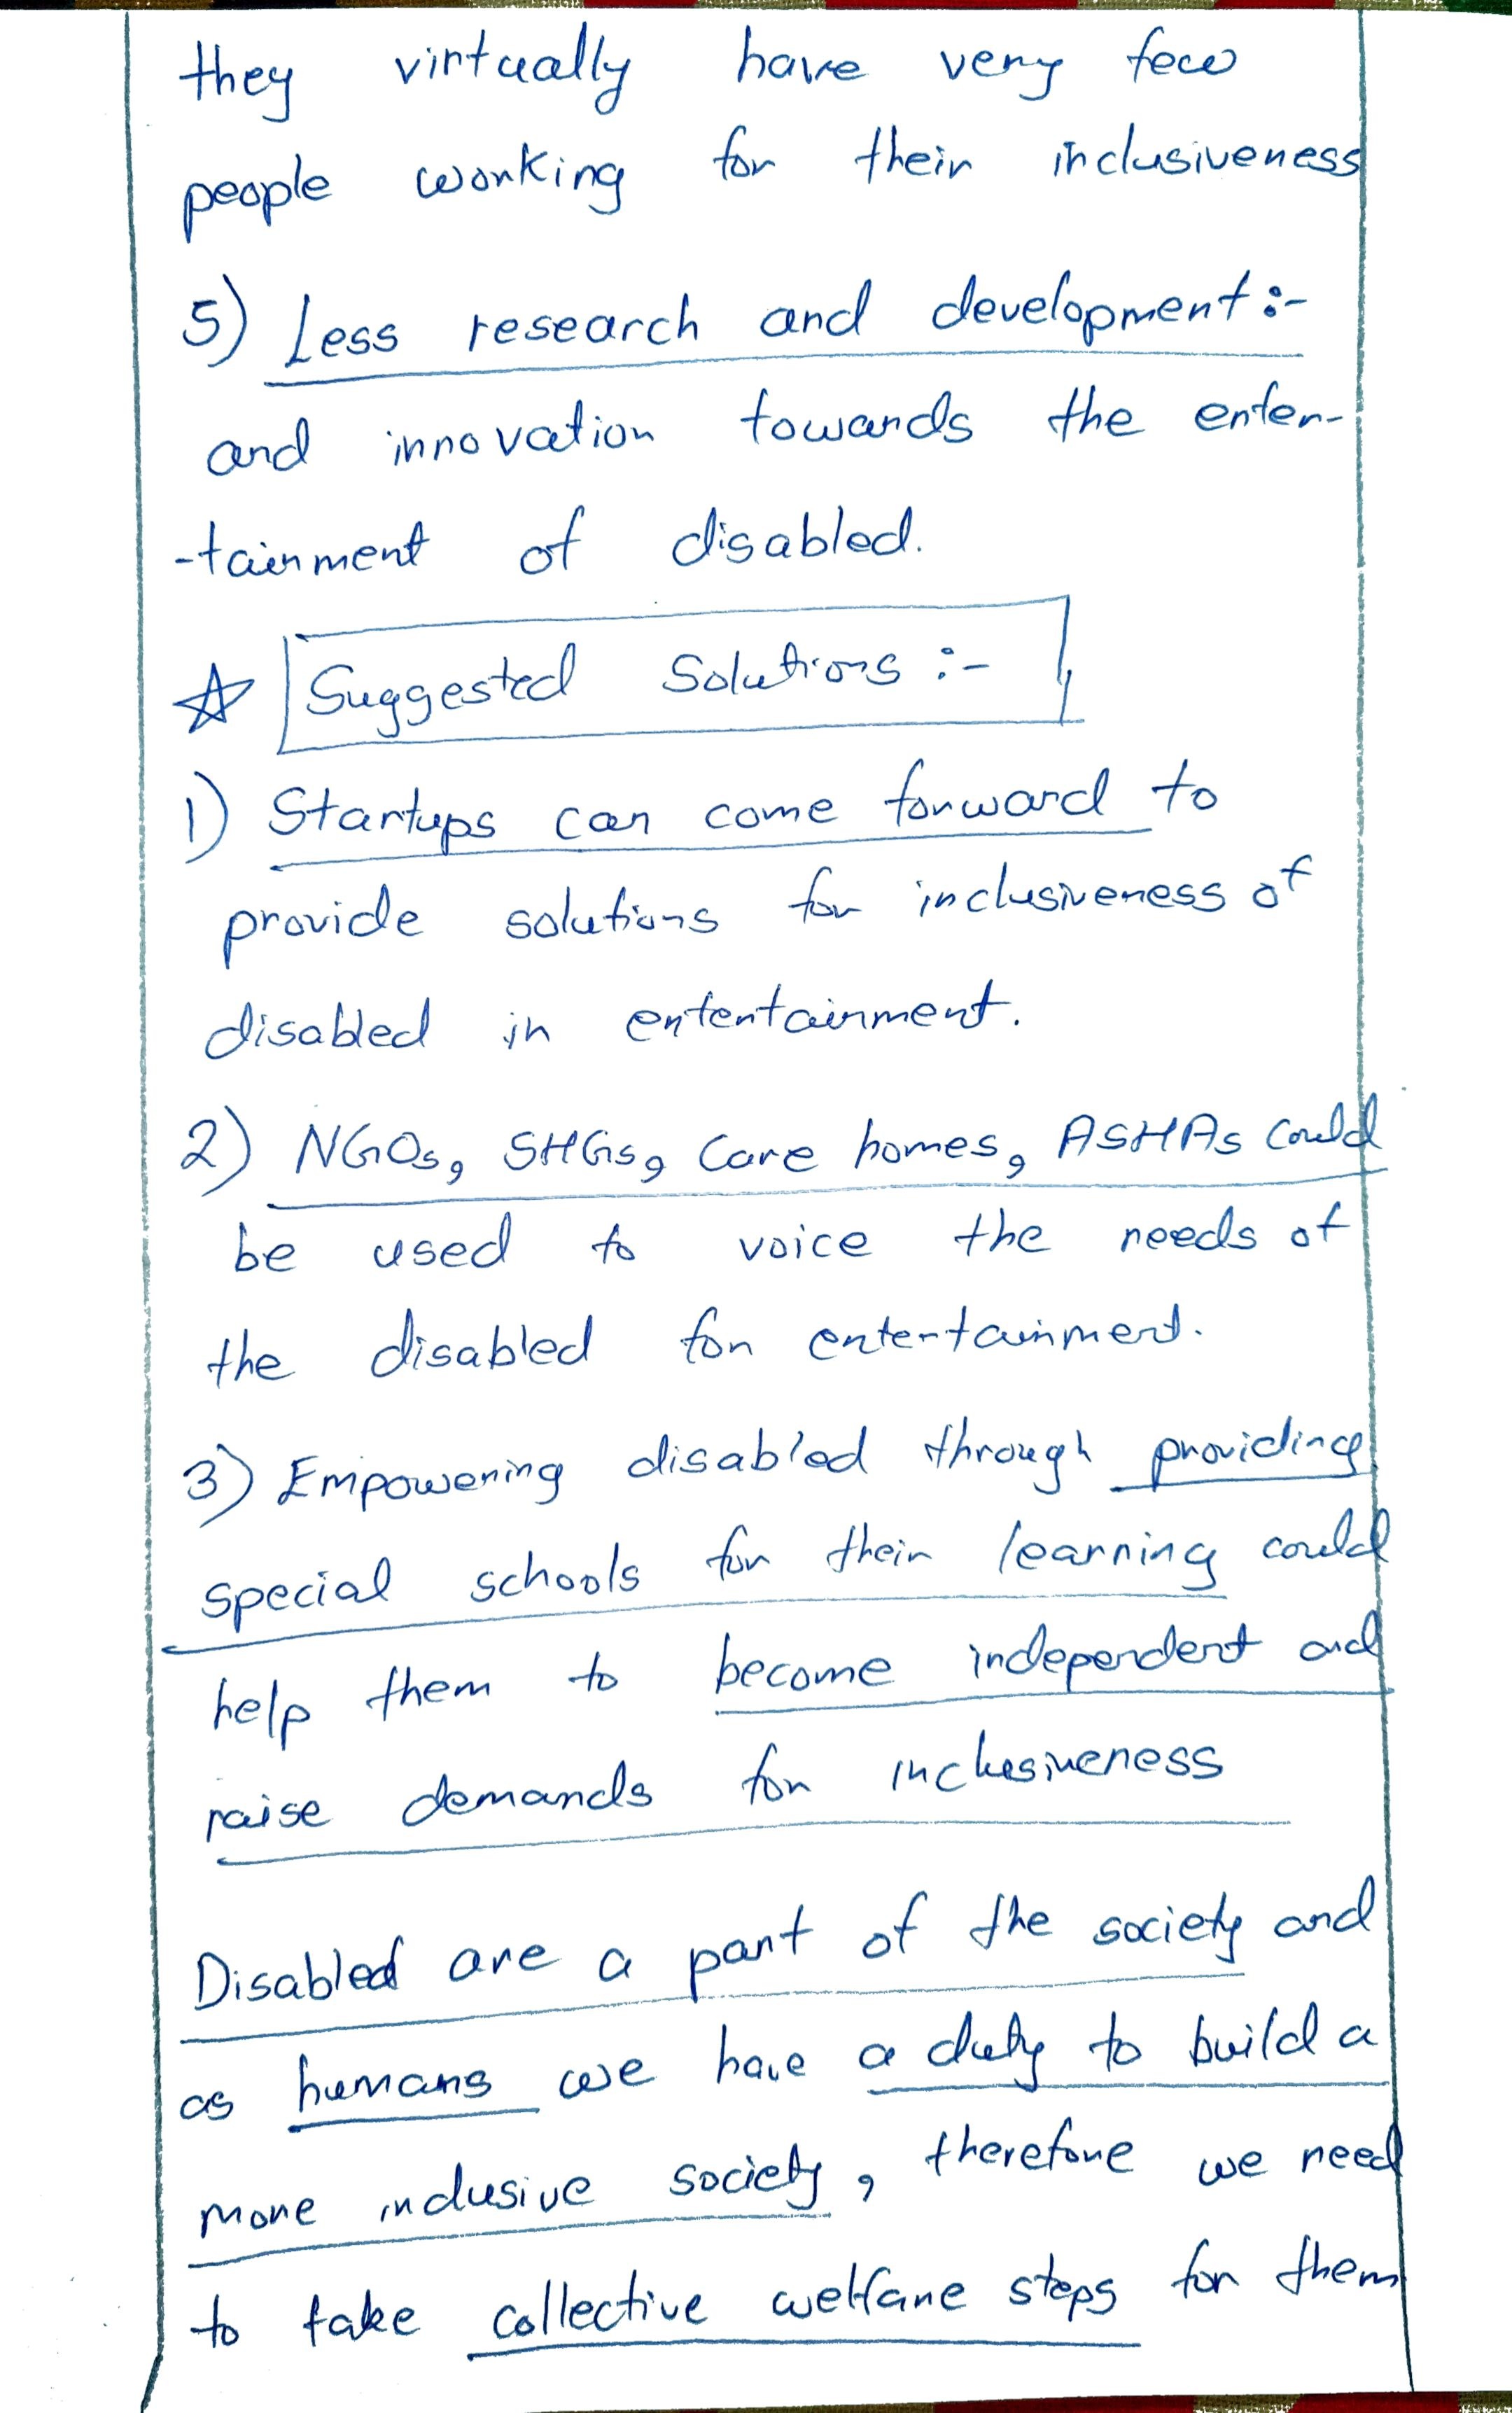 they virtually have very few
people working for their inclusiveness
5) Less research and development :-
and innovation towards the enter-
-tainment of disabled.
☆ Suggested Solutions :-
1) Startups can come forward to
provide solutions for inclusiveness of
disabled in entertainment.
2) NGOs, SHGs, Care homes, ASHAs could
be used to voice the needs of
the disabled for entertainment.
3) Empowering disabled through providing
special schools for their learning could
help them to become independent and
raise demands for inclusiveness
Disabled are a part of the society and
as humans we have a duty to build a
more inclusive society, therefore we need
to take collective welfare steps for them